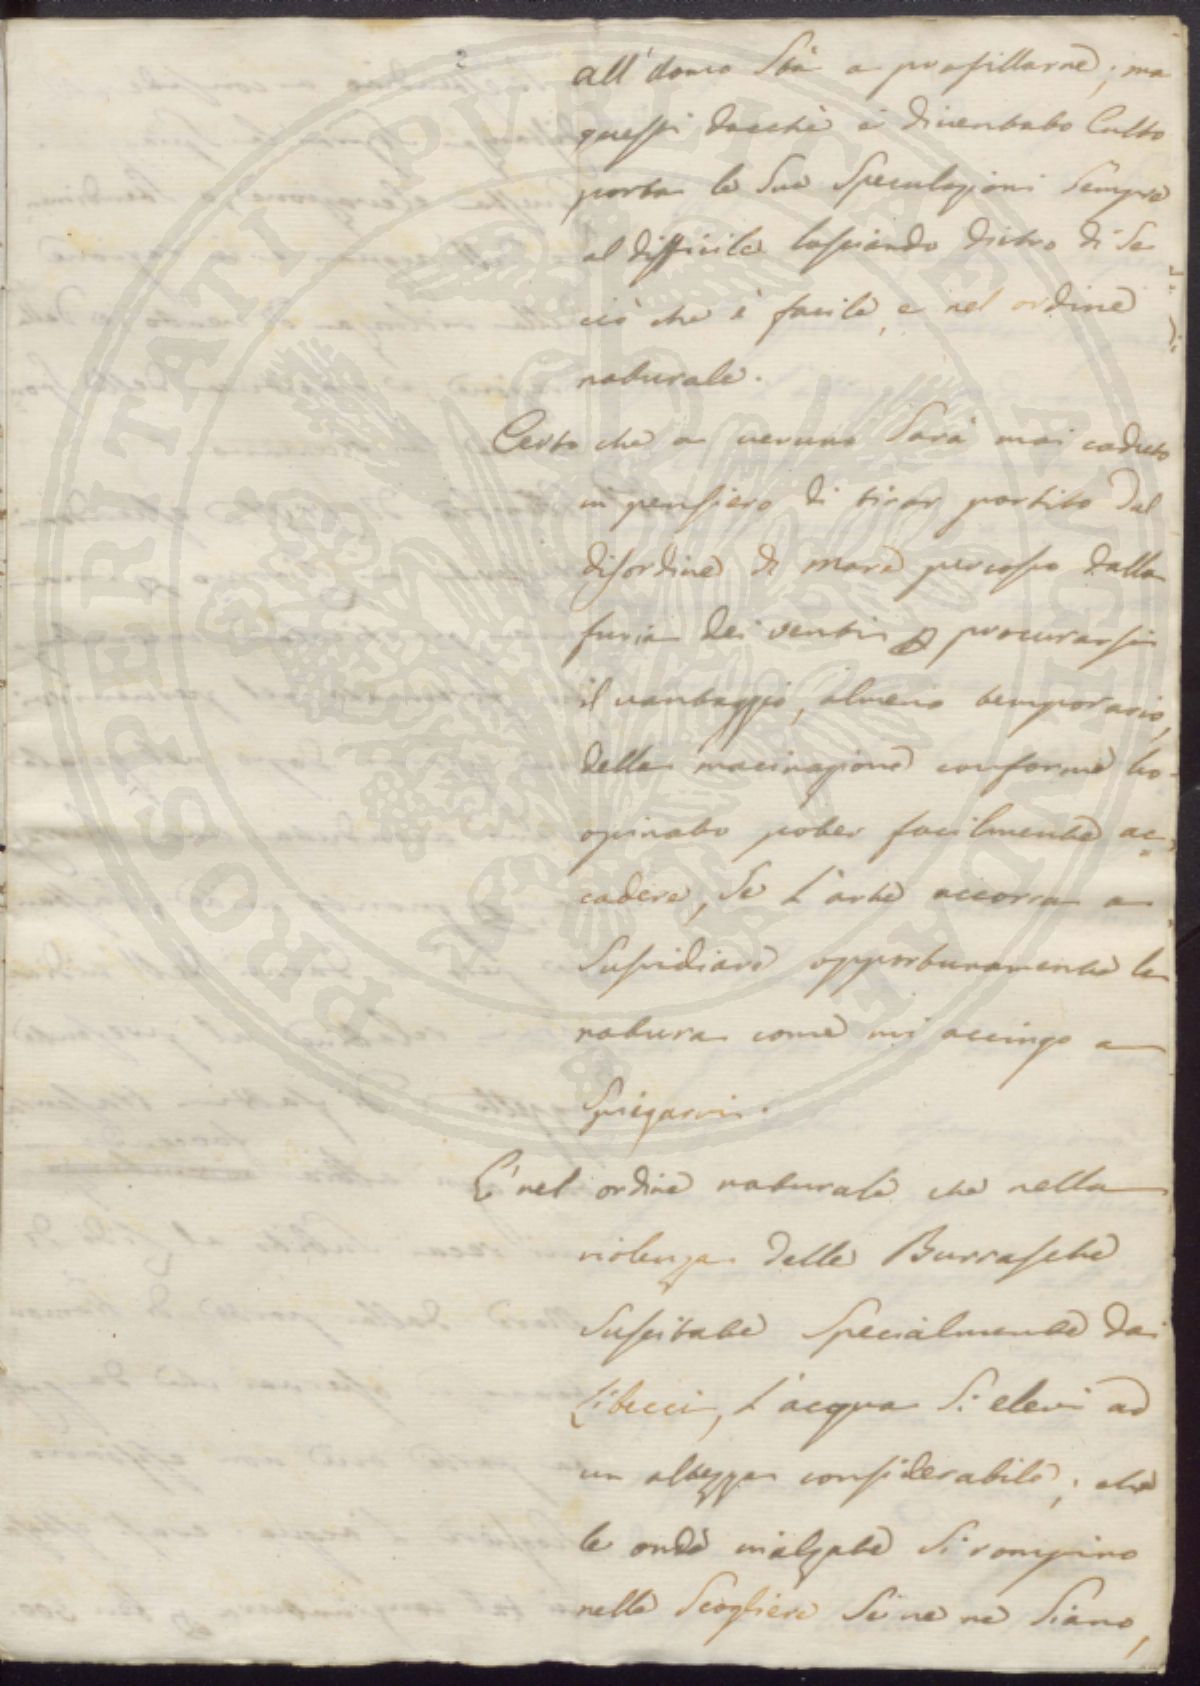 all'uomo Stà a profittarne; ma
questi dacchè è diventato Culto
porta le Sue Speculazioni Sempre
al difficile lasciando dietro di Se
ciò che è facile, e nel ordine
naturale.
Certo che a veruno Sarà mai caduto
in pensiero di tirar partito dal
disordine di mare percosso dalla
furia dei venti p procurarsi
il vantaggio, almeno temporario,
della macinazione conforme ho
opinato poter facilmente ac=
cadere, Se l'arte accorra a
Sussidiare opportunamente la
natura come mi accingo a
Spiegarvi.
E' nel ordine naturale che nella
violenza delle Burrasche
Suscitate Specialmente dai
Libecci, l'acqua Si elevi ad
un altezza considerabile; che
le onde inalzate Si rompino
nelle Scogliere Se ve ne Siano,
PROSPERITATI PVBLICAE AVGENDAE